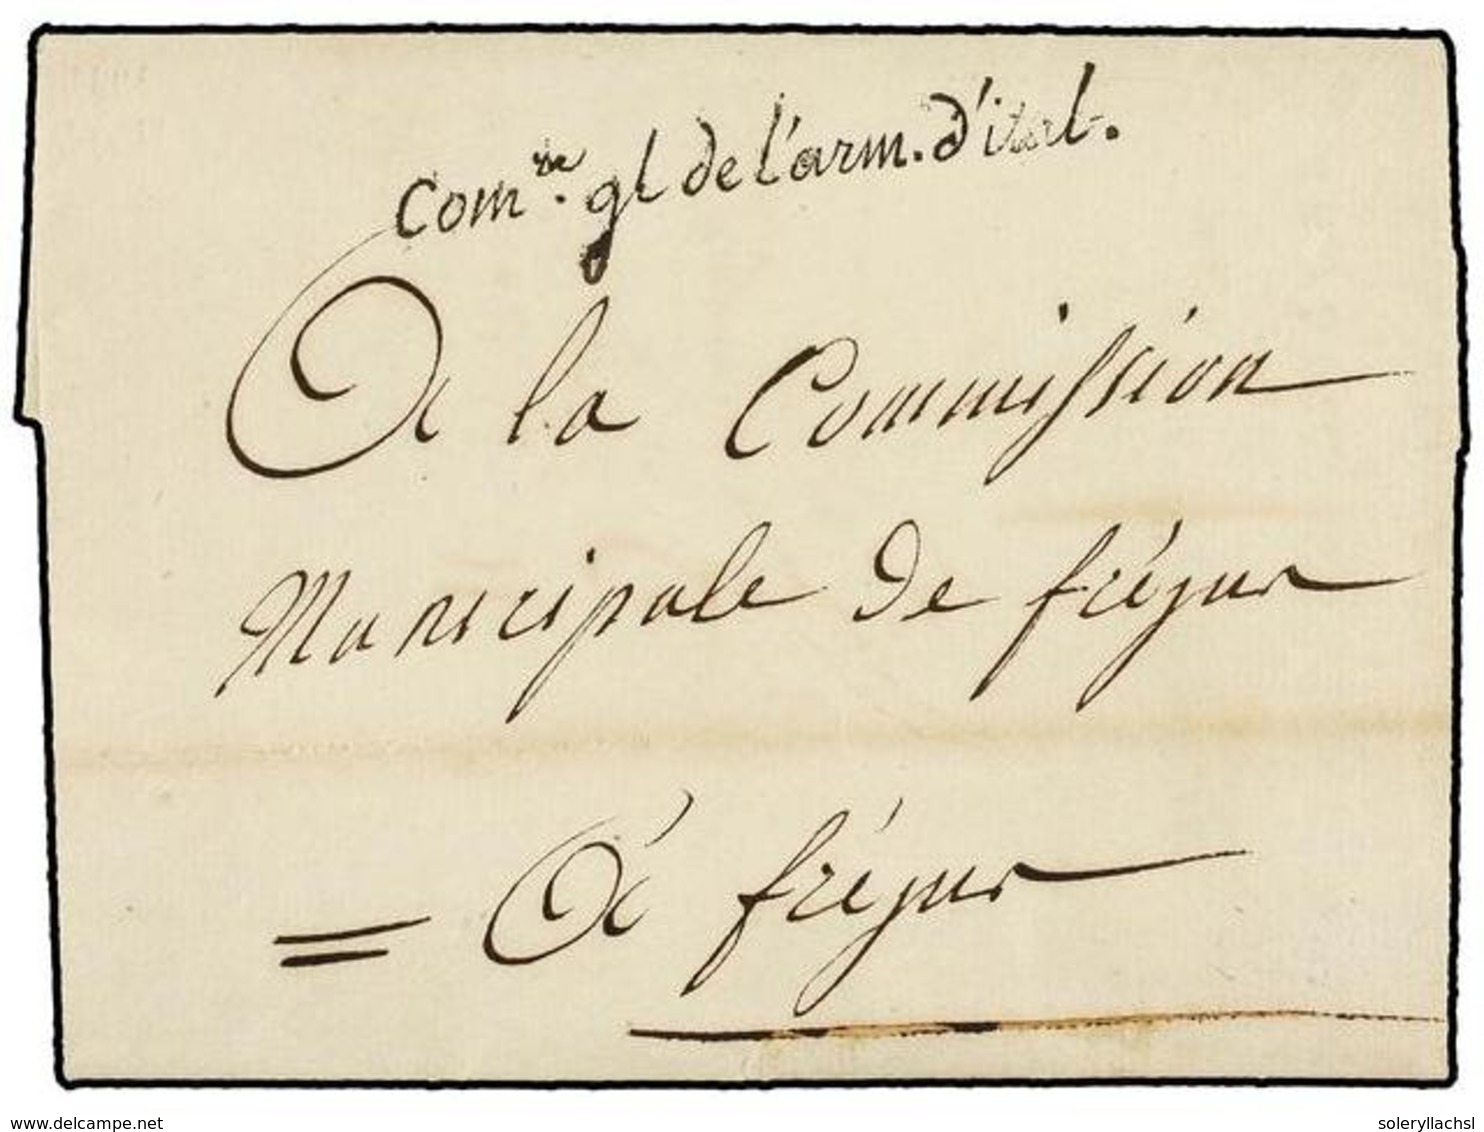 Com.re gl de l'arm. d'ital.
A la Commission
Municipale de fréjus
= A fréjus
www.delcampe.net
soleryllachsl